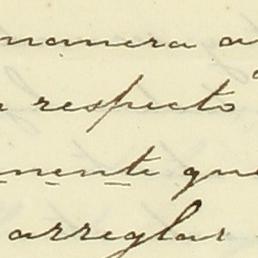 manera a
respecto
mente que
arreglar